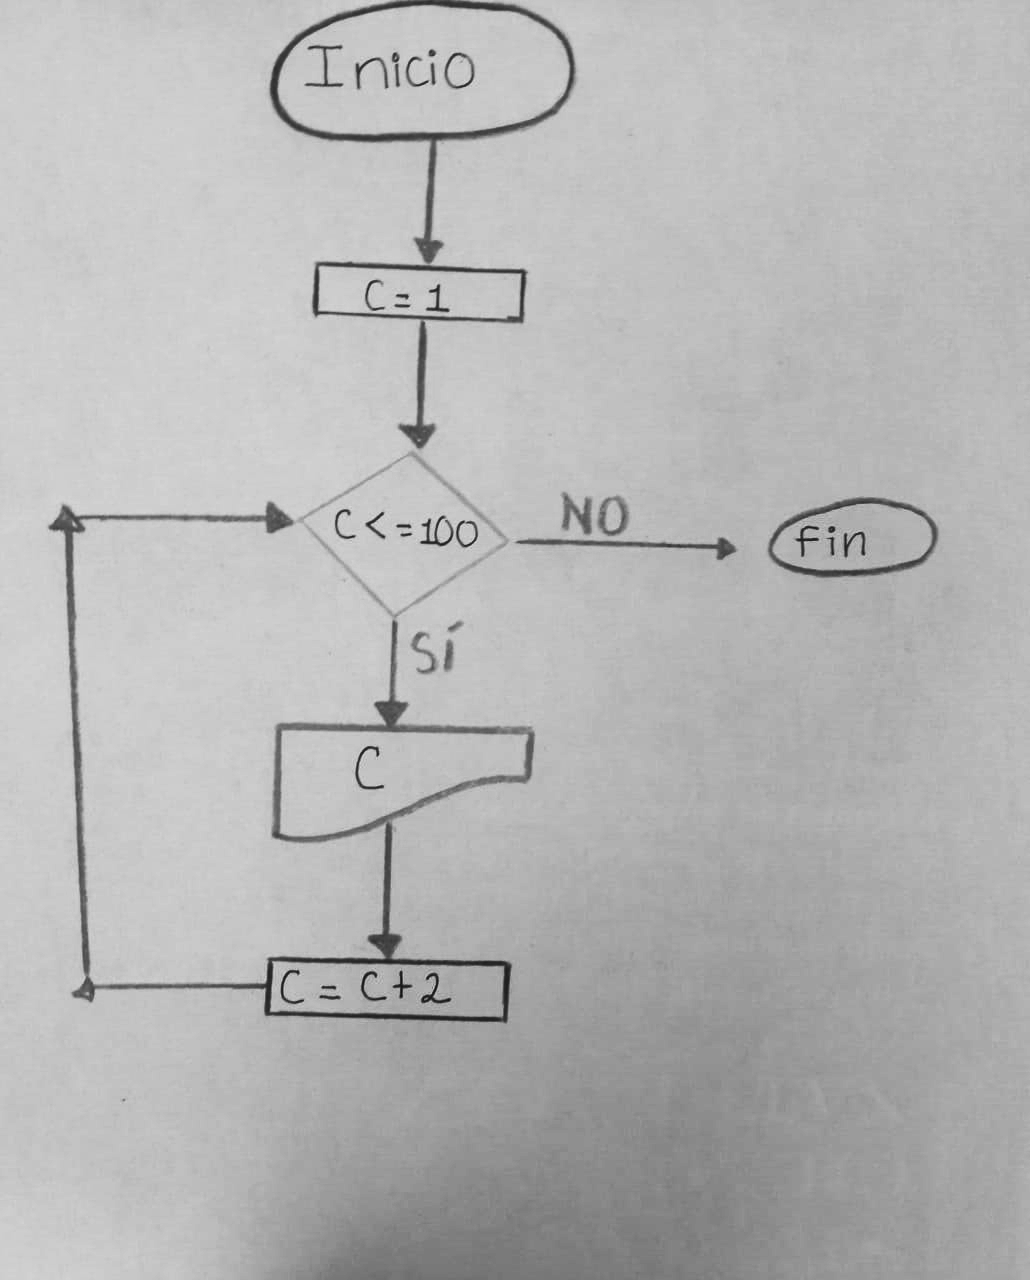 Inicio
C = 1
C <= 100
NO
fin
SÍ
C
C = C+2